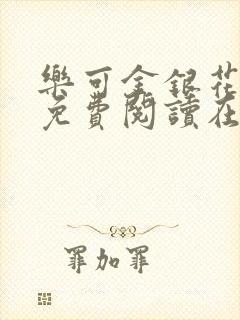 樂可金銀花
免費閱讀在
罪加罪